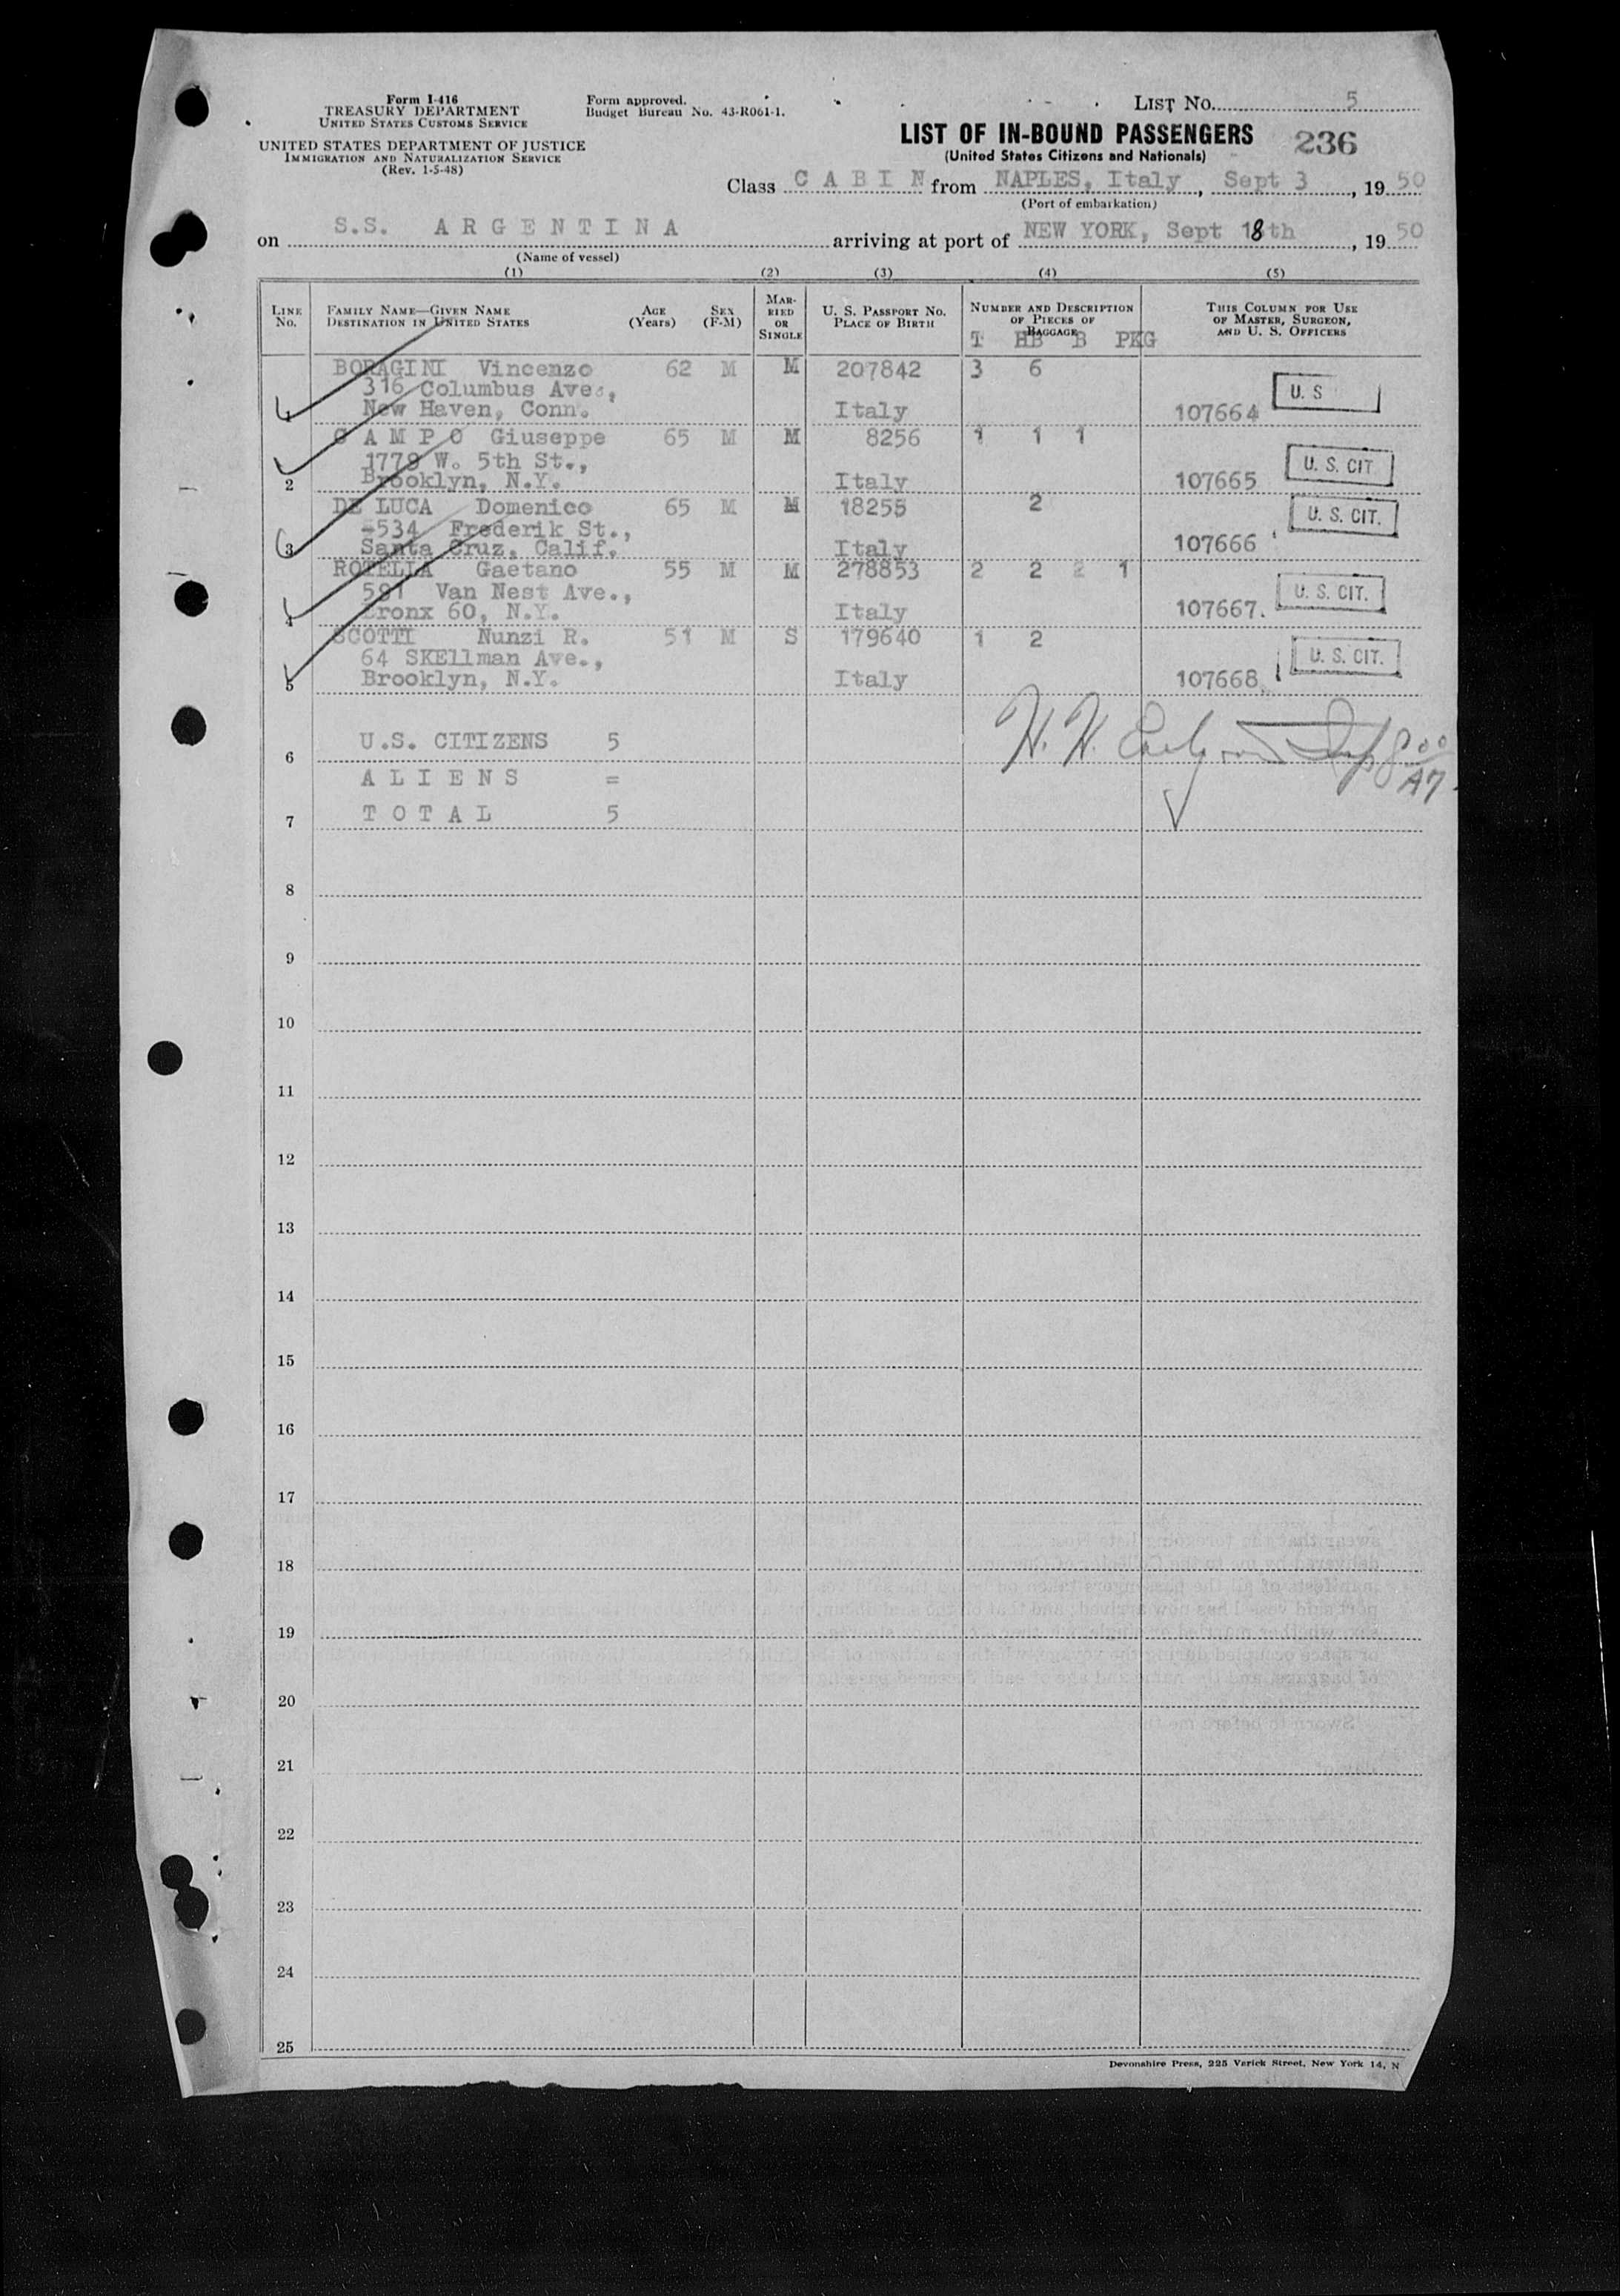 Form I-416
TREASURY DEPARTMENT
UNITED STATES CUSTOMS SERVICE
UNITED STATES DEPARTMENT OF JUSTICE
IMMIGRATION AND NATURALIZATION SERVICE
(Rev. 1-5-48)
Form approved.
Budget Bureau No. 43-R061-1.
LIST NO. 5
LIST OF IN-BOUND PASSENGERS 236
(United States Citizens and Nationals)
Class C A B I N from NAPLES, Italy, Sept 3, 1950
(Port of embarkation)
on S.S. A R G E N T I N A arriving at port of NEW YORK, Sept 18th, 1950
(Name of vessel)
(1) (2) (3) (4) (5)
LINE NO. FAMILY NAME—GIVEN NAME DESTINATION IN UNITED STATES AGE (Years) SEX (F-M) MARRIED OR SINGLE U. S. PASSPORT NO. PLACE OF BIRTH NUMBER AND DESCRIPTION OF PIECES OF BAGGAGE THIS COLUMN FOR USE OF MASTER, SURGEON, AND U. S. OFFICERS
T HB B PKG
BORAGINI Vincenzo 62 M M 207842 3 6
316 Columbus Ave., U. S
1 New Haven, Conn. Italy 107664
C A M P O Giuseppe 65 M M 8256 1 1 1
1779 W. 5th St., U. S. CIT
2 Brooklyn, N.Y. Italy 107665
DE LUCA Domenico 65 M M 18255 2
534 Frederik St., U. S. CIT.
3 Santa Cruz, Calif. Italy 107666
ROTELLA Gaetano 55 M M 278853 2 2 2 1
591 Van Nest Ave., U. S. CIT.
4 Bronx 60, N.Y. Italy 107667.
SCOTTI Nunzi R. 51 M S 179640 1 2
64 SKEllman Ave., U. S. CIT.
5 Brooklyn, N.Y. Italy 107668
6 U.S. CITIZENS 5
A L I E N S =
7 T O T A L 5
H. H.
8
9
10
11
12
13
14
15
16
17
18
19
20
21
22
23
24
25
Devonshire Press, 225 Varick Street, New York 14, N